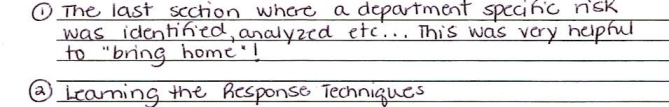 ① The last section where a department specific risk
was identified, analyzed etc... This was very helpful
to "bring home"!
② Learning the Response Techniques